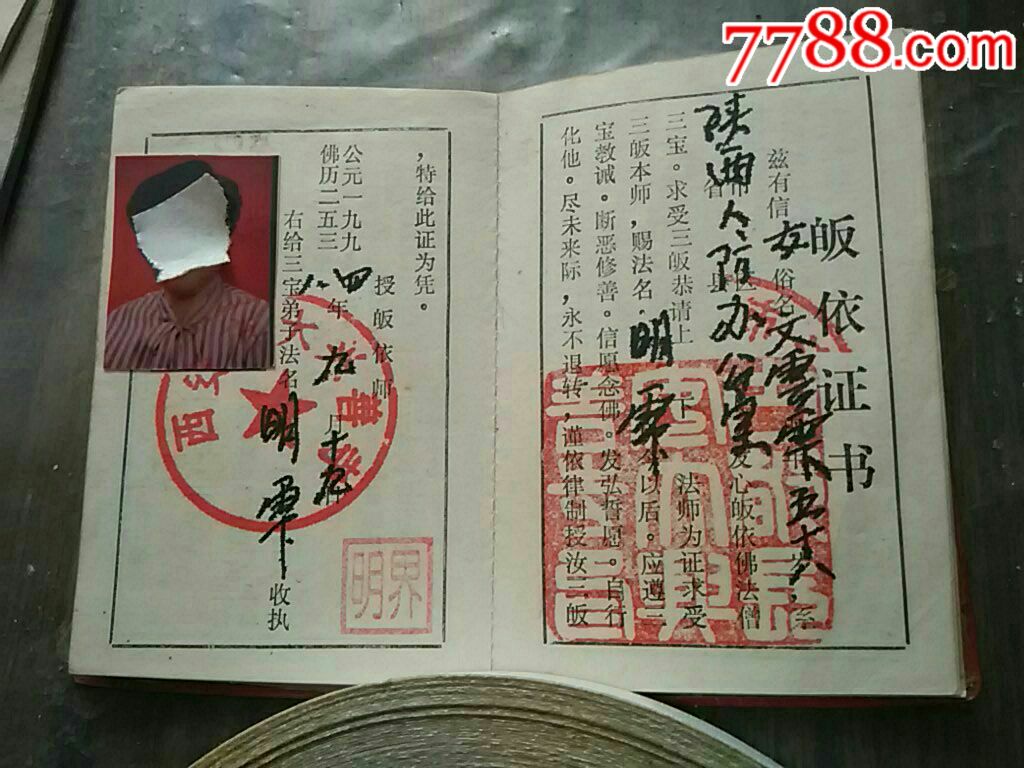 7788.com
皈依证书
兹有信女俗名文云霞五十八岁,至
陕西人防办公室
爱心皈依佛法僧
三宝。求受三皈恭请上 下 法师为证求受
三皈本师,赐法名明霞今以后。应遵三
宝教诫。断恶修善。信愿念佛。发弘誓愿。自行
化他。尽未来际,永不退转,谨依律制授汝三皈
,特给此证为凭。
授皈依师
公元一九九四年九月十九
佛历二五三八
右给三宝弟子法名明霞收执
界明